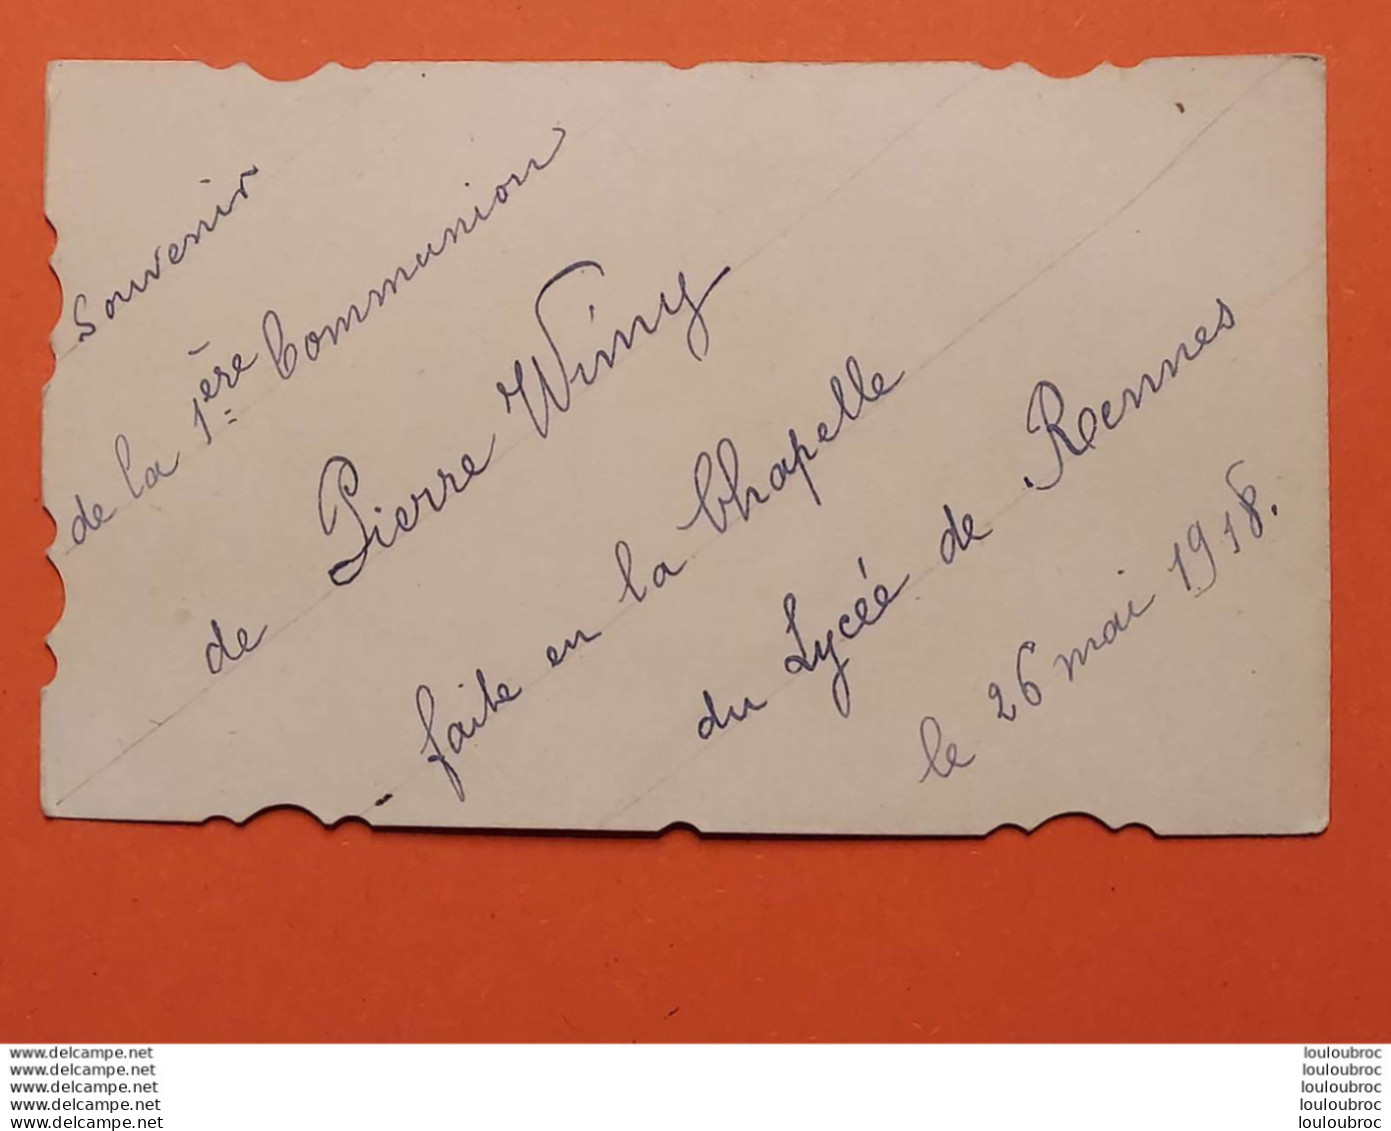 Souvenir
de la 1ère Communion
de Pierre Winy
faite en la Chapelle
du Lycée de Rennes
le 26 mai 1918.
www.delcampe.net
www.delcampe.net
www.delcampe.net
www.delcampe.net
www.delcampe.net
louloubroc
louloubroc
louloubroc
louloubroc
louloubroc